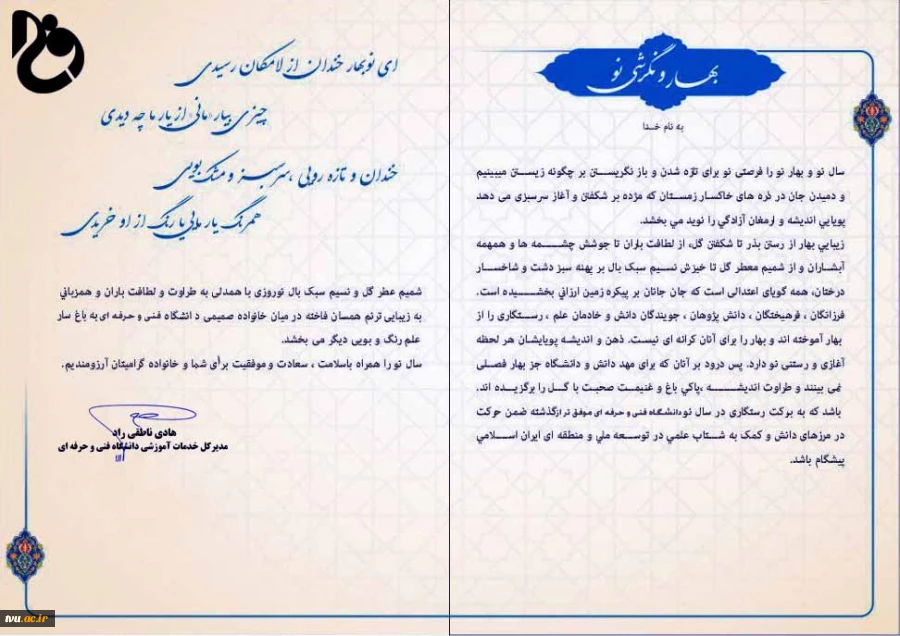 بهار و نگرشی نو
به نام خدا
سال نو و بهار نو را فرصتي نو براي تازه شدن و باز نگريستن بر چگونه زيستن ميبينيم
و دميدن جان در ذره هاي خاكسار زمستان كه مژده بر شكفتن و آغاز سرسبزي مي دهد
پويايي انديشه و ارمغان آزادگي را نويد مي بخشد.
زيبايي بهار از رستن بذر تا شكفتن گل، از لطافت باران تا جوشش چشمه ها و همهمه
آبشاران و از شميم معطر گل تا خيزش نسيم سبک بال بر پهنه سبز دشت و شاخسار
درختان، همه گوياي اعتدالی است كه جان جانان بر پيكره زمين ارزاني بخشيده است.
فرزانگان ، فرهيختگان ، دانش پژوهان ، جويندگان دانش و خادمان علم ، رستگاری را از
بهار آموخته اند و بهار را برای آنان كرانه ای نيست. ذهن و انديشه پويايشان هر لحظه
آغازي و رستني نو دارد. پس درود بر آنان كه برای مهد دانش و دانشگاه جز بهار فصلی
نمی بينند و طراوت انديشه ،پاكي باغ و غنيمت صحبت با گل را برگزيده اند.
باشد كه به بركت رستگاری در سال نو دانشگاه فنی و حرفه ای موفق تر ازگذشته ضمن حركت
در مرزهاي دانش و كمک به شتاب علمي در توسعه ملي و منطقه ای ايران اسلامي
پيشگام باشد.
ای نوبهار خندان از لامکان رسیدی
چیزی بیار مانی از یار ما چه دیدی
خندان و تازه رویی ،سرسبز و مشک بویی
همرنگ یار مایی یا رنگ از او خریدی
شميم عطر گل و نسيم سبک بال نوروزی با همدلی به طراوت و لطافت باران و همزباني
به زيبایی ترنم همسان فاخته در ميان خانواده صميمی دانشگاه فنی و حرفه ای به باغ سار
علم رنگ و بويی ديگر می بخشد.
سال نو را همراه باسلامت ، سعادت و موفقيت برای شما و خانواده گراميتان آرزومنديم.
هادی ناطقی راد
مدیرکل خدمات آموزشی دانشگاه فنی و حرفه ای
tvu.ac.ir